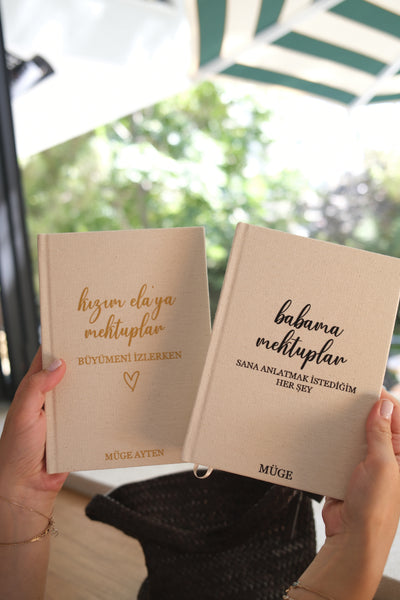 kızım ela'ya
mektuplar
BÜYÜMENİ İZLERKEN
MÜGE AYTEN
babama
mektuplar
SANA ANLATMAK İSTEDİĞİM
HER ŞEY
MÜGE